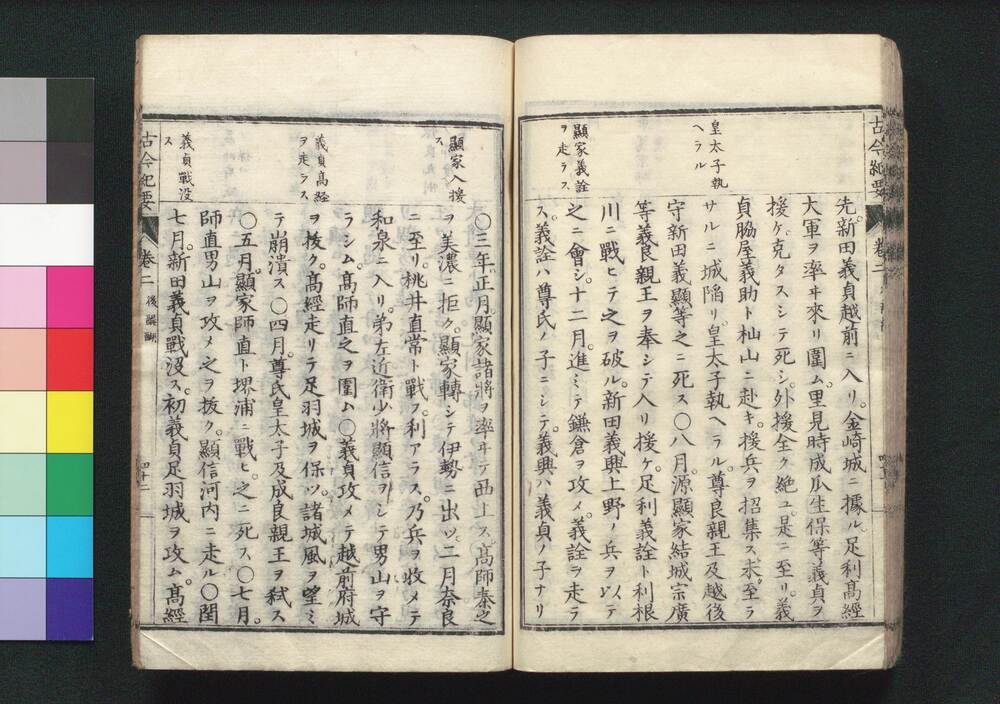 古今紀要
卷二
皇太子執
ヘラル
顯家義詮
ヲ走ラス
先。新田義貞越前ニ入リ。金崎城ニ據ル。足利髙經
大軍ヲ率ヰ來リ圍ム。里見時成瓜生保等義貞ヲ
援ケ。克タスシテ死シ。外援全ク絶ユ。是ニ至リ。義
貞脇屋義助ト杣山ニ赴キ。援兵ヲ招集ス。未タ至ラ
サルニ城陷リ。皇太子執ヘラル。尊良親王及越後
守新田義顯等之ニ死ス〇八月。源顯家結城宗廣
等義良親王ヲ奉シテ入リ援ケ。足利義詮ト利根
川ニ戰ヒテ之ヲ破ル。新田義興上野ノ兵ヲ以テ
之ニ會シ。十二月。進ミテ鎌倉ヲ攻メ。義詮ヲ走ラ
ス。義詮ハ尊氏ノ子ニシテ。義興ハ義貞ノ子ナリ
顯家入援
ス
義貞髙經
ヲ走ラス
義貞戰沒
ス
〇三年。正月。顯家諸將ヲ率ヰテ西上ス。髙師泰之
ヲ美濃ニ拒ク。顯家轉シテ伊勢ニ出ツ。二月奈良
ニ至リ。桃井直常ト戰フ。利アラス。乃兵ヲ收メテ
和泉ニ入リ。弟左近衛少將顯信ヲシテ男山ヲ守
ラシム。髙師直之ヲ圍ム〇義貞攻メテ越前府城
ヲ拔ク。髙經走リテ足羽城ヲ保ツ。諸城風ヲ望ミ
テ崩潰ス〇四月。尊氏皇太子及成良親王ヲ弑ス
〇五月。顯家師直ト堺浦ニ戰ヒ。之ニ死ス〇七月。
師直男山ヲ攻メ之ヲ拔ク。顯信河内ニ走ル〇閏
七月。新田義貞戰沒ス。初義貞足羽城ヲ攻ム。髙經
古今紀要
卷二
後醍醐
四十二